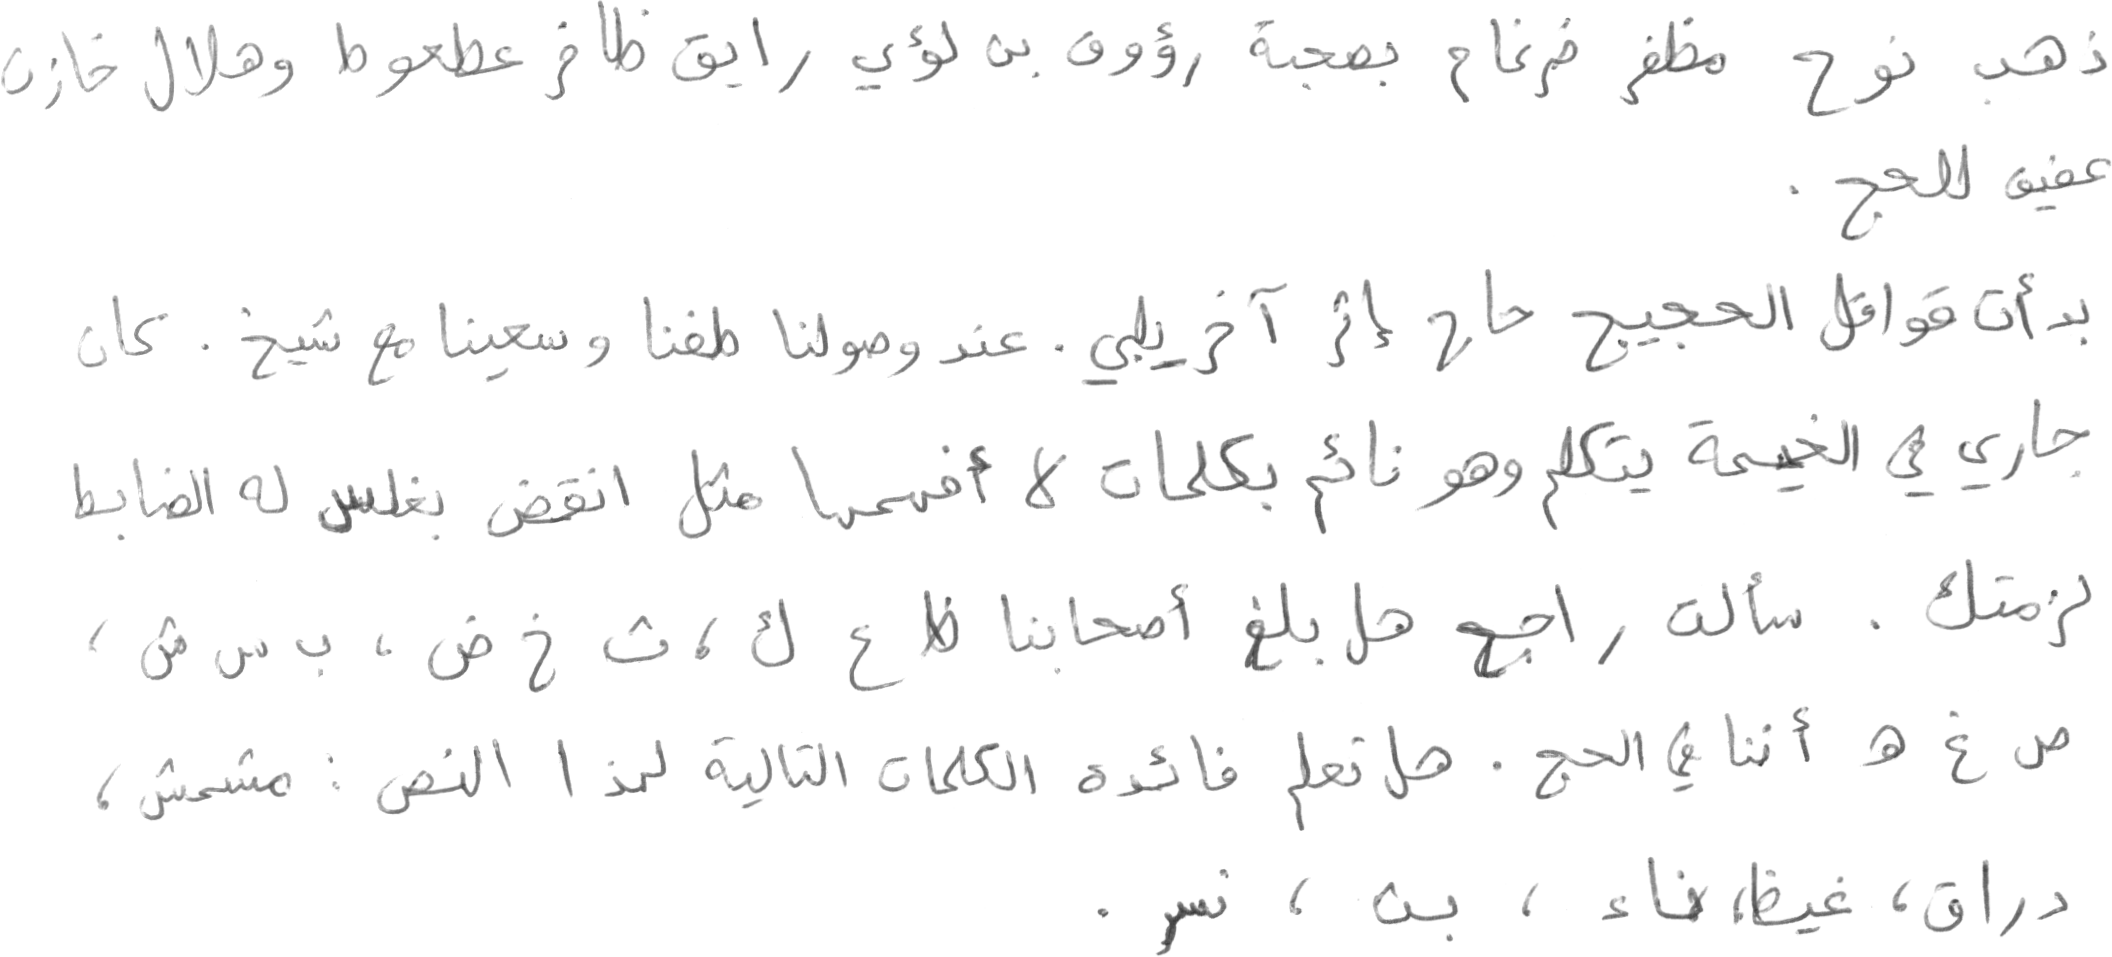 ذهب نوح مظفر ضرغام بصحبة رؤوف بن لؤي رايق ظافر عطعوط وهلال خازن
عفيف للحج .
بدأت قوافل الحجيج حاج إثر آخر يلبي . عند وصولنا طفنا وسعينا مع شيخ . كان
جاري في الخيمة يتكلم وهو نائم بكلمات لا أفهمها مثل انقض بغلس له الضابط
لزمتك . سألت راجح هل بلغ أصحابنا ظ ع ك ، ث خ ض ، ب س ش ،
ص غ ه أننا في الحج . هل تعلم فائدة الكلمات التالية لهذا النص : مشمش ،
دراق ، غيظ ، فاء ، بث ، نسر .